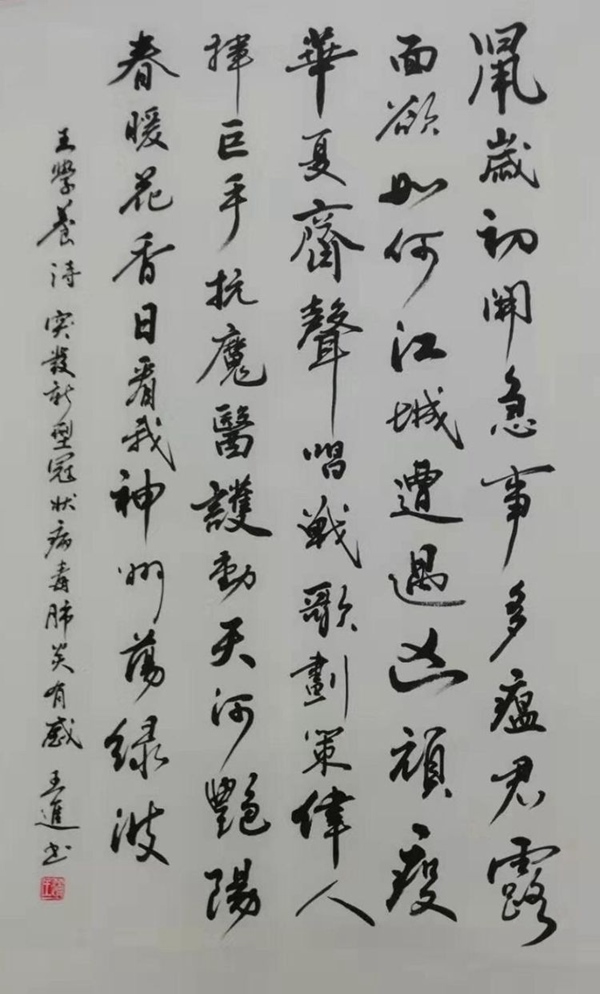 鼠歲初開急事多瘟君露
面欲如何江城遭遇凶頑疫
華夏齊聲唱戰歌劃策偉人
揮巨手抗魔醫護動天河艷陽
春暖花香日看我神州蕩綠波
王學養诗 突发新型冠状病毒肺炎有感 王進书